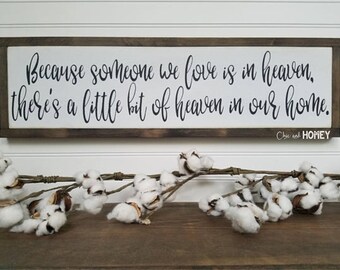 Because someone we love is in heaven,
there's a little bit of heaven in our home.
Chic and HOMEY